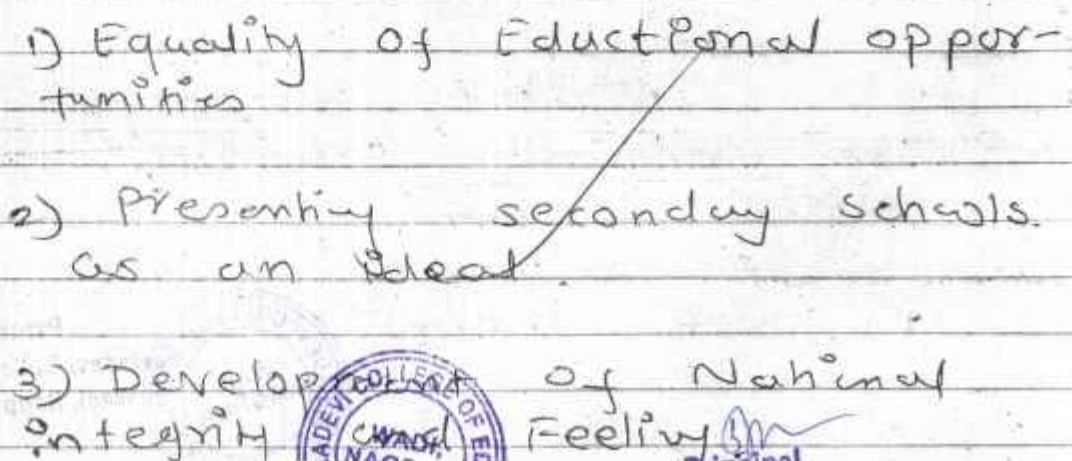 1) Equality of Eductional oppor-
tunities
2) Presenting seconday schools.
as an ideal.
3) Development of National
integrity and Feeling
ADEVI COLLEGE OF ED
WADI,
NAG
Principal